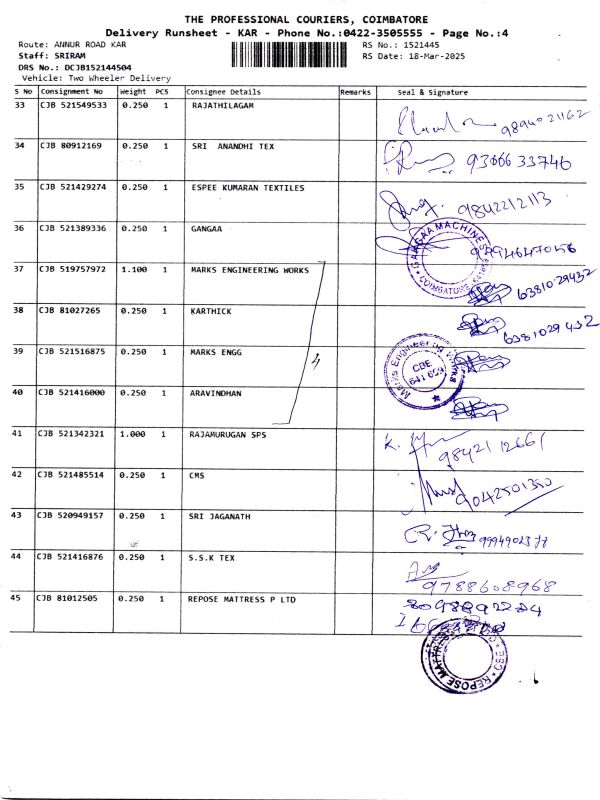 THE PROFESSIONAL COURIERS, COIMBATORE
Delivery Runsheet - KAR - Phone No.:0422-3505555 - Page No.:4
Route: ANNUR ROAD KAR RS No.: 1521445
Staff: SRIRAM RS Date: 18-Mar-2025
DRS No.: DCJB152144504
Vehicle: Two Wheeler Delivery
S No Consignment No Weight PCS Consignee Details Remarks Seal & Signature
33 CJB 521549533 0.250 1 RAJATHILAGAM 9894021162
34 CJB 80912169 0.250 1 SRI ANANDHI TEX 9366633746
35 CJB 521429274 0.250 1 ESPEE KUMARAN TEXTILES 9842212113
36 CJB 521389336 0.250 1 GANGAA
GANGAA MACHINES
COIMBATORE
37 CJB 519757972 1.100 1 MARKS ENGINEERING WORKS 6381029432
38 CJB 81027265 0.250 1 KARTHICK 6381029432
39 CJB 521516875 0.250 1 MARKS ENGG
4
Marks Engineering Works
CBE
641 659
40 CJB 521416000 0.250 1 ARAVINDHAN
41 CJB 521342321 1.000 1 RAJAMURUGAN SPS K. 9842112661
42 CJB 521485514 0.250 1 CMS 9042501350
43 CJB 520949157 0.250 1 SRI JAGANATH
44 CJB 521416876 0.250 1 S.S.K TEX 9788608968
45 CJB 81012505 0.250 1 REPOSE MATTRESS P LTD
REPOSE MATTRESS